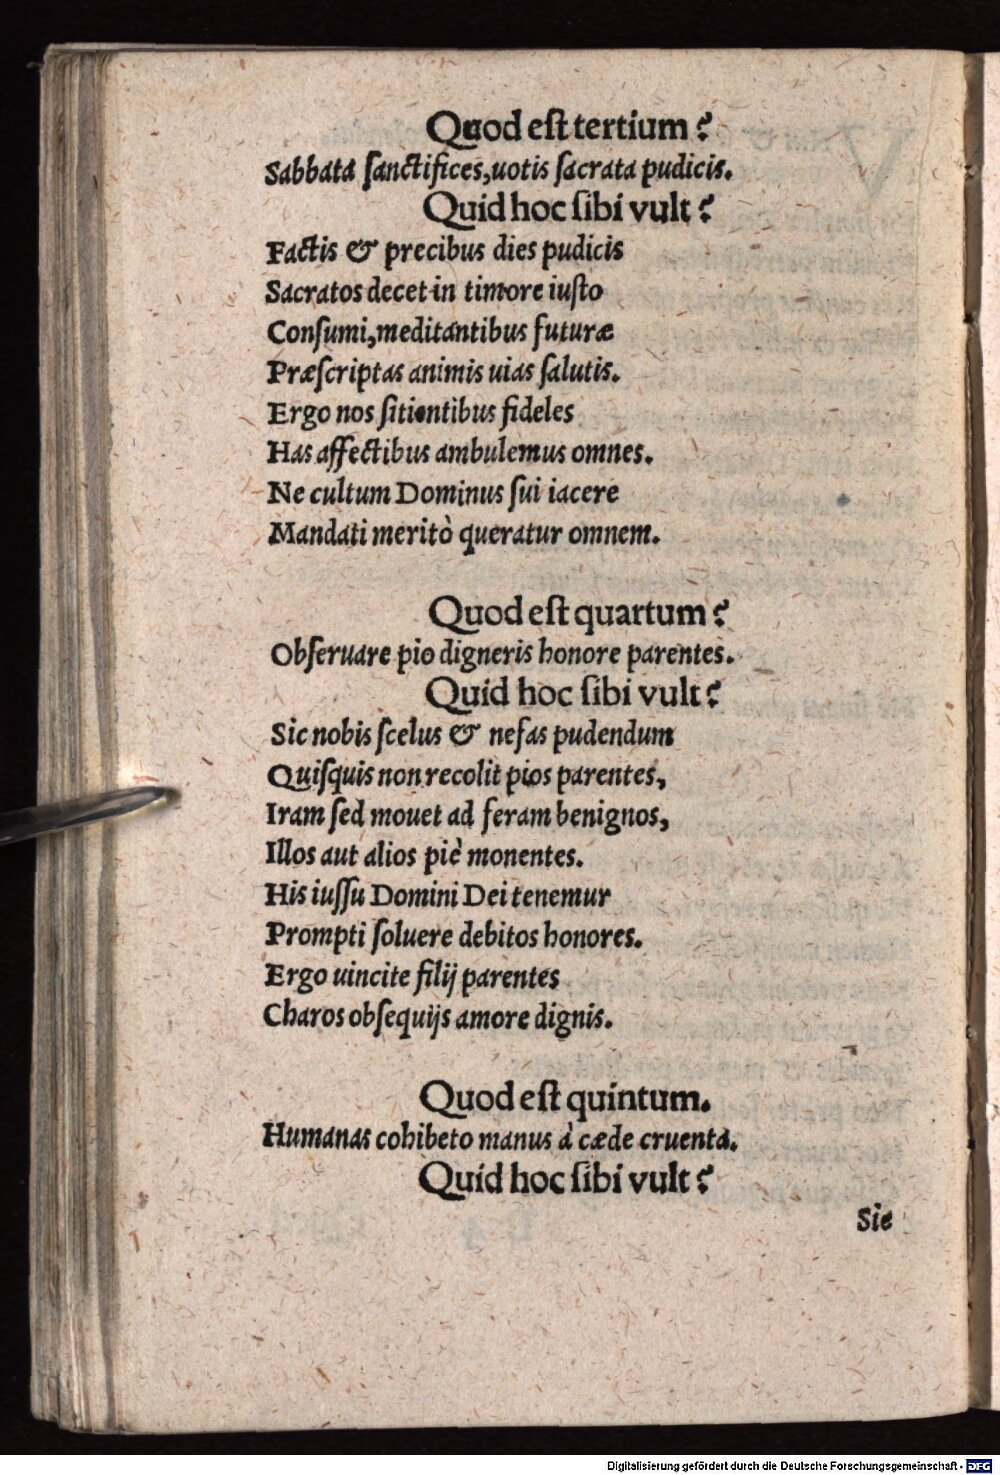 Quod eſt tertium?
Sabbata ſanctifices, uotis ſacrata pudicis.
Quid hoc ſibi vult?
Factis & precibus dies pudicis
Sacratos decet in timore iuſto
Conſumi, meditantibus futuræ
Præſcriptas animis uias ſalutis.
Ergo nos ſitientibus fideles
Has affectibus ambulemus omnes.
Ne cultum Dominus ſui iacere
Mandati meritò queratur omnem.
Quod eſt quartum?
Obſeruare pio digneris honore parentes.
Quid hoc ſibi vult?
Sic nobis ſcelus & nefas pudendum
Quiſquis non recolit pios parentes,
Iram ſed mouet ad feram benignos,
Illos aut alios piè monentes.
His iuſſu Domini Dei tenemur
Prompti ſoluere debitos honores.
Ergo uincite filij parentes
Charos obſequijs amore dignis.
Quod eſt quintum.
Humanas cohibeto manus à cæde cruenta.
Quid hoc ſibi vult?
Sic
Digitalisierung gefördert durch die Deutsche Forschungsgemeinschaft - DFG